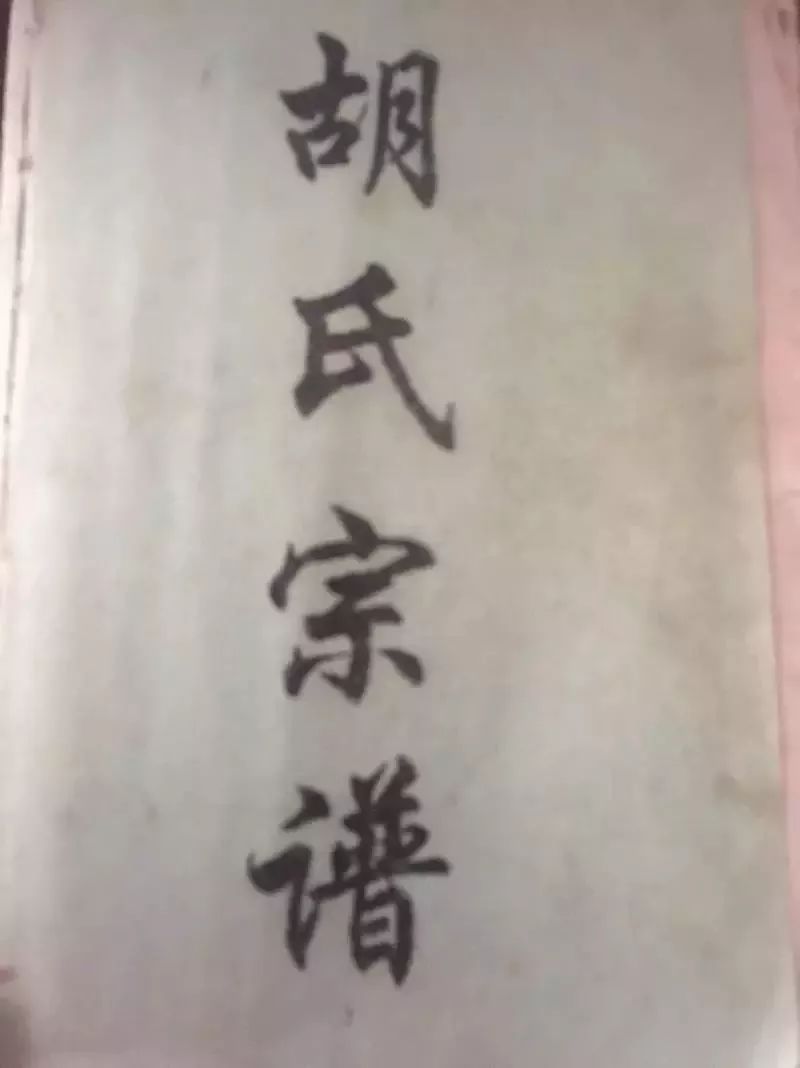 胡氏宗谱